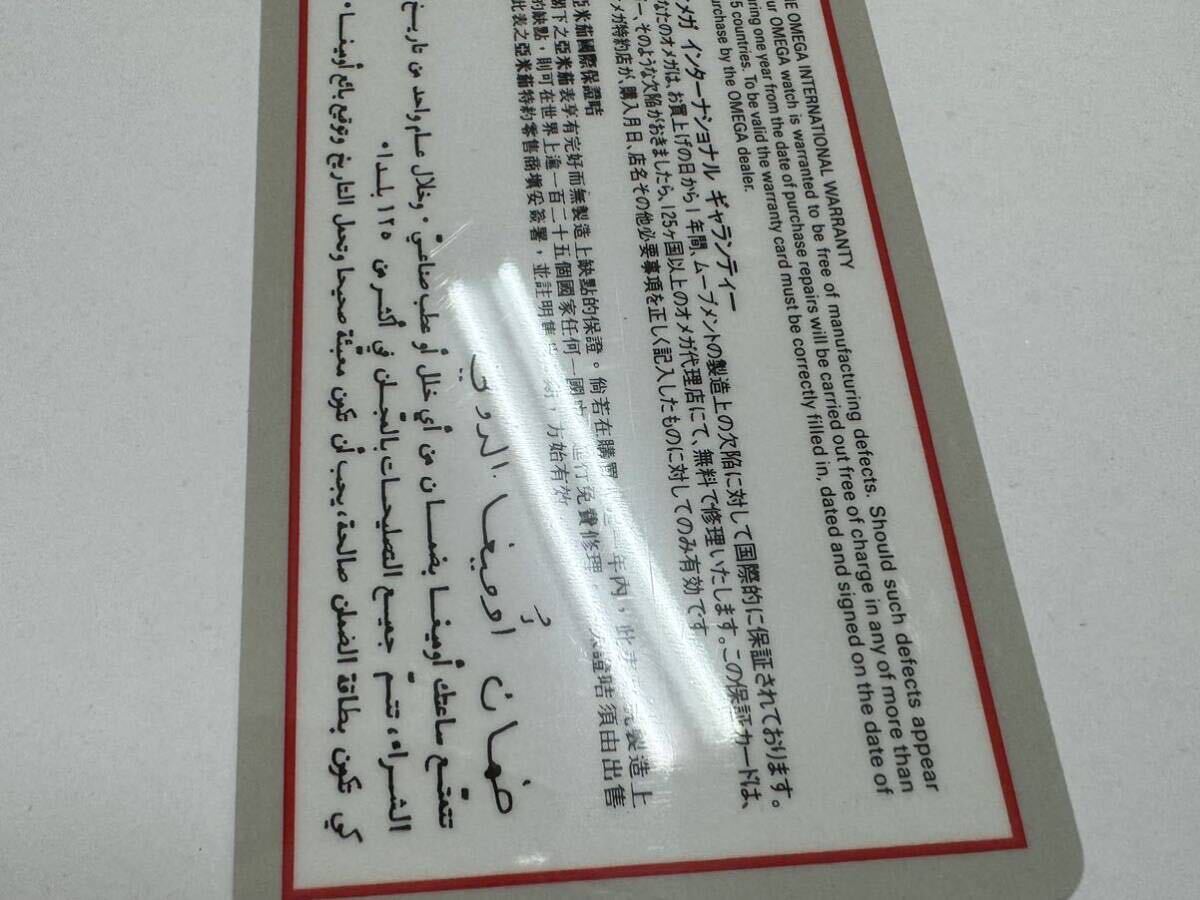 THE OMEGA INTERNATIONAL WARRANTY
OMEGA watch is warranted to be free of manufacturing defects. Should such defects appear
one year from the date of purchase repairs will be carried out free of charge in any of more than
5 countries. To be valid the warranty card must be correctly filled in, dated and signed on the date of
purchase by the OMEGA dealer.
メガ インターナショナル ギャランティー
なたのオメガは、お買上げの日から1年間、ムーブメントの製造上の欠陥に対して国際的に保証されております。
そのような欠陥がおきましたら、125ヶ国以上のオメガ代理店にて、無料で修理いたします。この保証カードは、
メガ特約店が、購入月日、店名その他必要事項を正しく記入したものに対してのみ有効です
亞米茄國際保證咭
閣下之亞米茄表享有完好而無製造上缺點的保證。倘若在購買 年內，此 製造上
的缺點，則可在世界上逾一百二十五個國家任何一國 進行免費修理。 證咭須由出售
此表之亞米茄特約零售商填妥簽署，並註明售 方始有效
ضمان أوميغا الدولي
تتمتع ساعتك أوميغا بضمان من أي خلل أو عطب صناعي. وخلال عام واحد من تاريخ
الشراء، تتم جميع التصليحات بالمجان في أكثر من ١٢٥ بلدا.
كي تكون بطاقة الضمان صالحة، يجب أن تكون معبئة صحيحا وتحمل التاريخ وتوقيع بائع أوميغا.